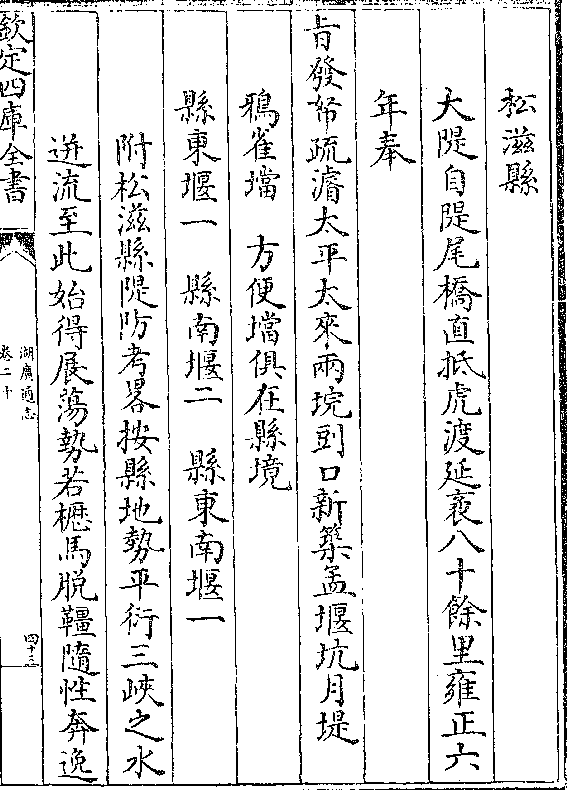 松滋縣
大隄自隄尾橋直抵虎渡延袤八十餘里雍正六
年奉
旨發帑疏濬太平太來兩垸剅口新築孟堰坑月堤
鴉雀壋　方便壋俱在縣境
縣東堰一　縣南堰二　縣東南堰一
附松滋縣隄防考畧按縣地勢平衍三峽之水
迸流至此始得展蕩勢若櫪馬脫韁隨性奔逸
欽定四庫全書
湖廣通志
卷二十
四十三